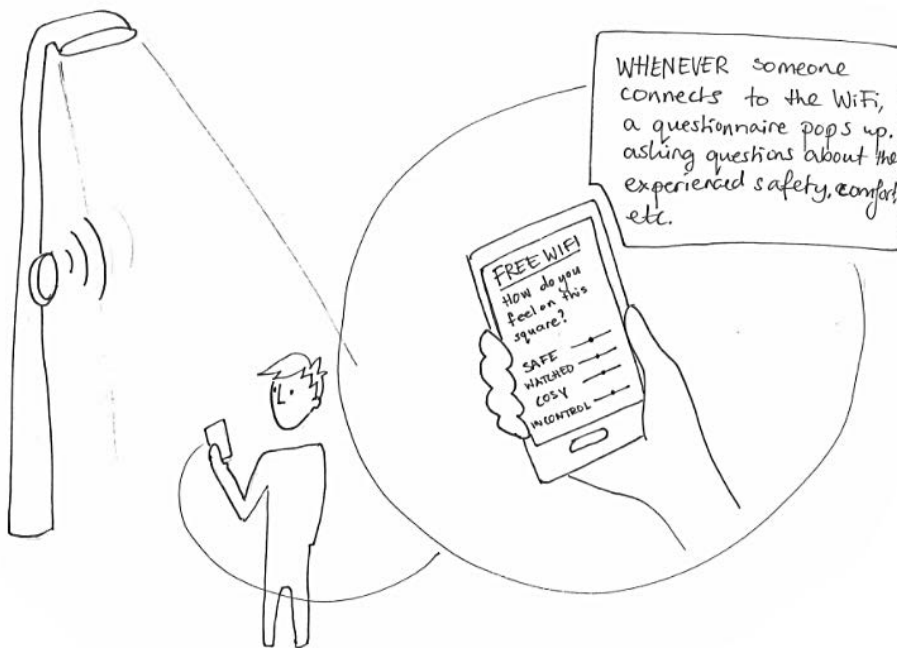 WHENEVER someone
connects to the WiFi,
a questionnaire pops up.
asking questions about the
experienced safety, comfort,
etc.
FREE WIFI
How do you
feel on this
square?
SAFE
WATCHED
COSY
IN CONTROL